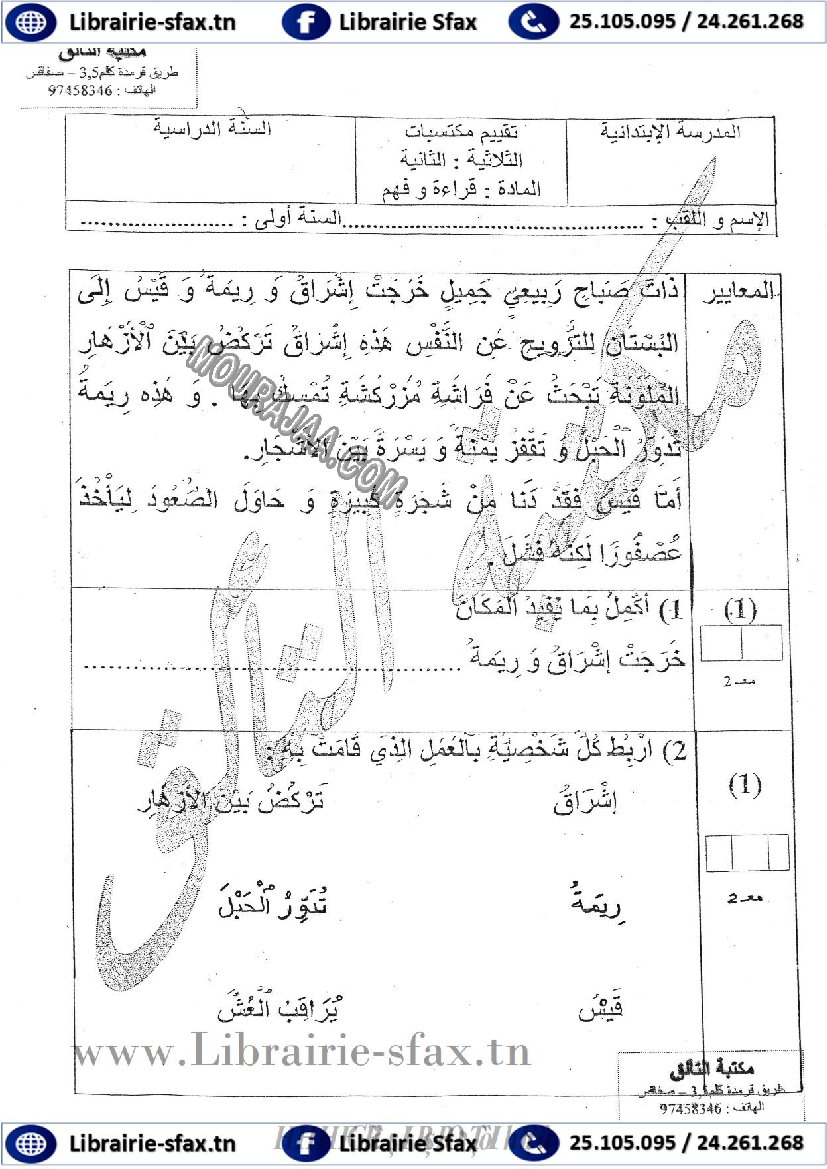 Librairie-sfax.tn Librairie Sfax 25.105.095 / 24.261.268
مكتبة التألق
طريق قرمدة كلم3,5 – صفاقس
الهاتف : 97458346
المدرسة الإبتدائية
تقييم مكتسبات
الثلاثية : الثانية
المادة : قراءة و فهم
السنة الدراسية
الإسم و اللقب : ............................................السنة أولى : .......................
المعايير
ذَاتَ صَبَاحٍ رَبِيعِيٍّ جَمِيلٍ خَرَجَتْ إِشْرَاقُ وَ رِيمَةُ وَ قَيْسُ إِلَى
البُسْتَانِ لِلتَّرْوِيحِ عَنِ النَّفْسِ هَذِهِ إِشْرَاقُ تَرْكُضُ بَيْنَ الْأَزْهَارِ
المُلَوَّنَةِ تَبْحَثُ عَنْ فَرَاشَةٍ مُزَرْكَشَةٍ تُمْسِكُ بِهَا . وَ هَذِه رِيمَةُ
تُدَوِّرُ الْحَبْلَ وَ تَقْفِزُ يَمْنَةً وَ يَسْرَةً بَيْنَ الأَشْجَارِ.
أَمَّا قَيْسُ فَقَدْ دَنَا مِنْ شَجَرَةٍ كَبِيرَةٍ وَ حَاوَلَ الصُّعُودَ لِيَأْخُذَ
عُصْفُورًا لَكِنَّهُ فَشَلَ .
(1)
1) أُكْمِلُ بِمَا يُفِيدُ الْمَكَانَ
خَرَجَتْ إِشْرَاقُ وَ رِيمَةُ ................................................
معـ 2
2) ارْبِطْ كُلَّ شَخْصِيَّةٍ بِالْعَمَلِ الَّذِي قَامَتْ بِهِ :
(1)
إِشْرَاقُ تَرْكُضُ بَيْنَ الأَزْهَارِ
معـ 2
رِيمَةُ تُدَوِّرُ الْحَبْلَ
قَيْسُ يُرَاقِبُ الْعُشَّ
MOURAJAA.COM
مكتبة التألق
www.Librairie-sfax.tn
مكتبة التألق
طريق قرمدة كلم3,5 – صفاقس
الهاتف : 97458346
Librairie-sfax.tn Librairie Sfax 25.105.095 / 24.261.268